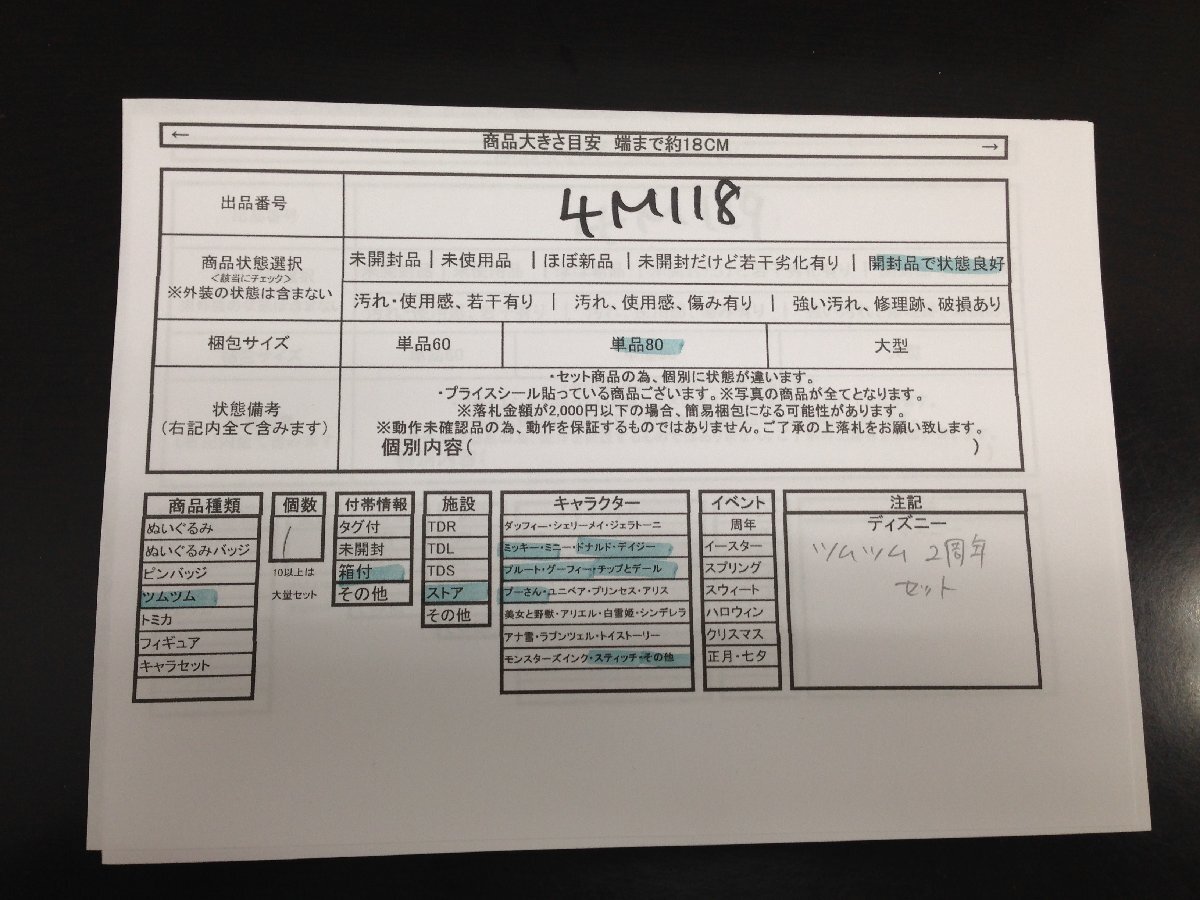 ← 商品大きさ目安 端まで約18CM →
出品番号 4M118
商品状態選択
<該当にチェック>
※外装の状態は含まない
未開封品 | 未使用品 | ほぼ新品 | 未開封だけど若干劣化有り | 開封品で状態良好
汚れ・使用感、若干有り | 汚れ、使用感、傷み有り | 強い汚れ、修理跡、破損あり
梱包サイズ 単品60 単品80 大型
状態備考
(右記内全て含みます)
・セット商品の為、個別に状態が違います。
・プライスシール貼っている商品ございます。※写真の商品が全てとなります。
※落札金額が2,000円以下の場合、簡易梱包になる可能性があります。
※動作未確認品の為、動作を保証するものではありません。ご了承の上落札をお願い致します。
個別内容( )
商品種類
ぬいぐるみ
ぬいぐるみバッジ
ピンバッジ
ツムツム
トミカ
フィギュア
キャラセット
個数
1
10以上は
大量セット
付帯情報
タグ付
未開封
箱付
その他
施設
TDR
TDL
TDS
ストア
その他
キャラクター
ダッフィー・シェリーメイ・ジェラトーニ
ミッキー・ミニー・ドナルド・デイジー
プルート・グーフィー・チップとデール
プーさん・ユニベア・プリンセス・アリス
美女と野獣・アリエル・白雪姫・シンデレラ
アナ雪・ラプンツェル・トイストーリー
モンスターズインク・スティッチ・その他
イベント
周年
イースター
スプリング
スウィート
ハロウィン
クリスマス
正月・七夕
注記
ディズニー
ツムツム 2周年
セット